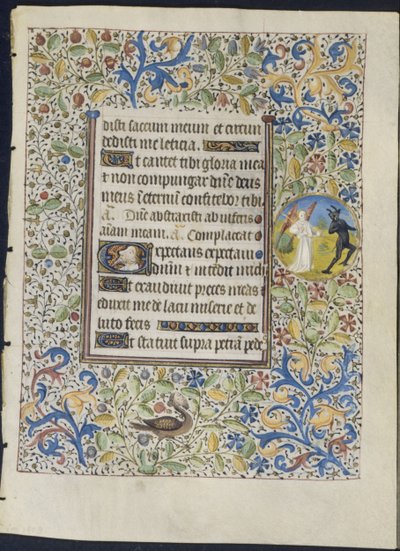 disti saccum meum et circum
dedisti me leticia.
Ut cantet tibi gloria mea
et non compungar dñe deus
meus in eternum confitebor tibi
a. Dñe abstraxisti ab inferis
aïam meam. a. Complaceat
Expectans expectaui
dñum et intendit michi
Et exaudiuit preces meas et
eduxit me de lacu miserie et de
luto fecis
Et statuit supra petram pede